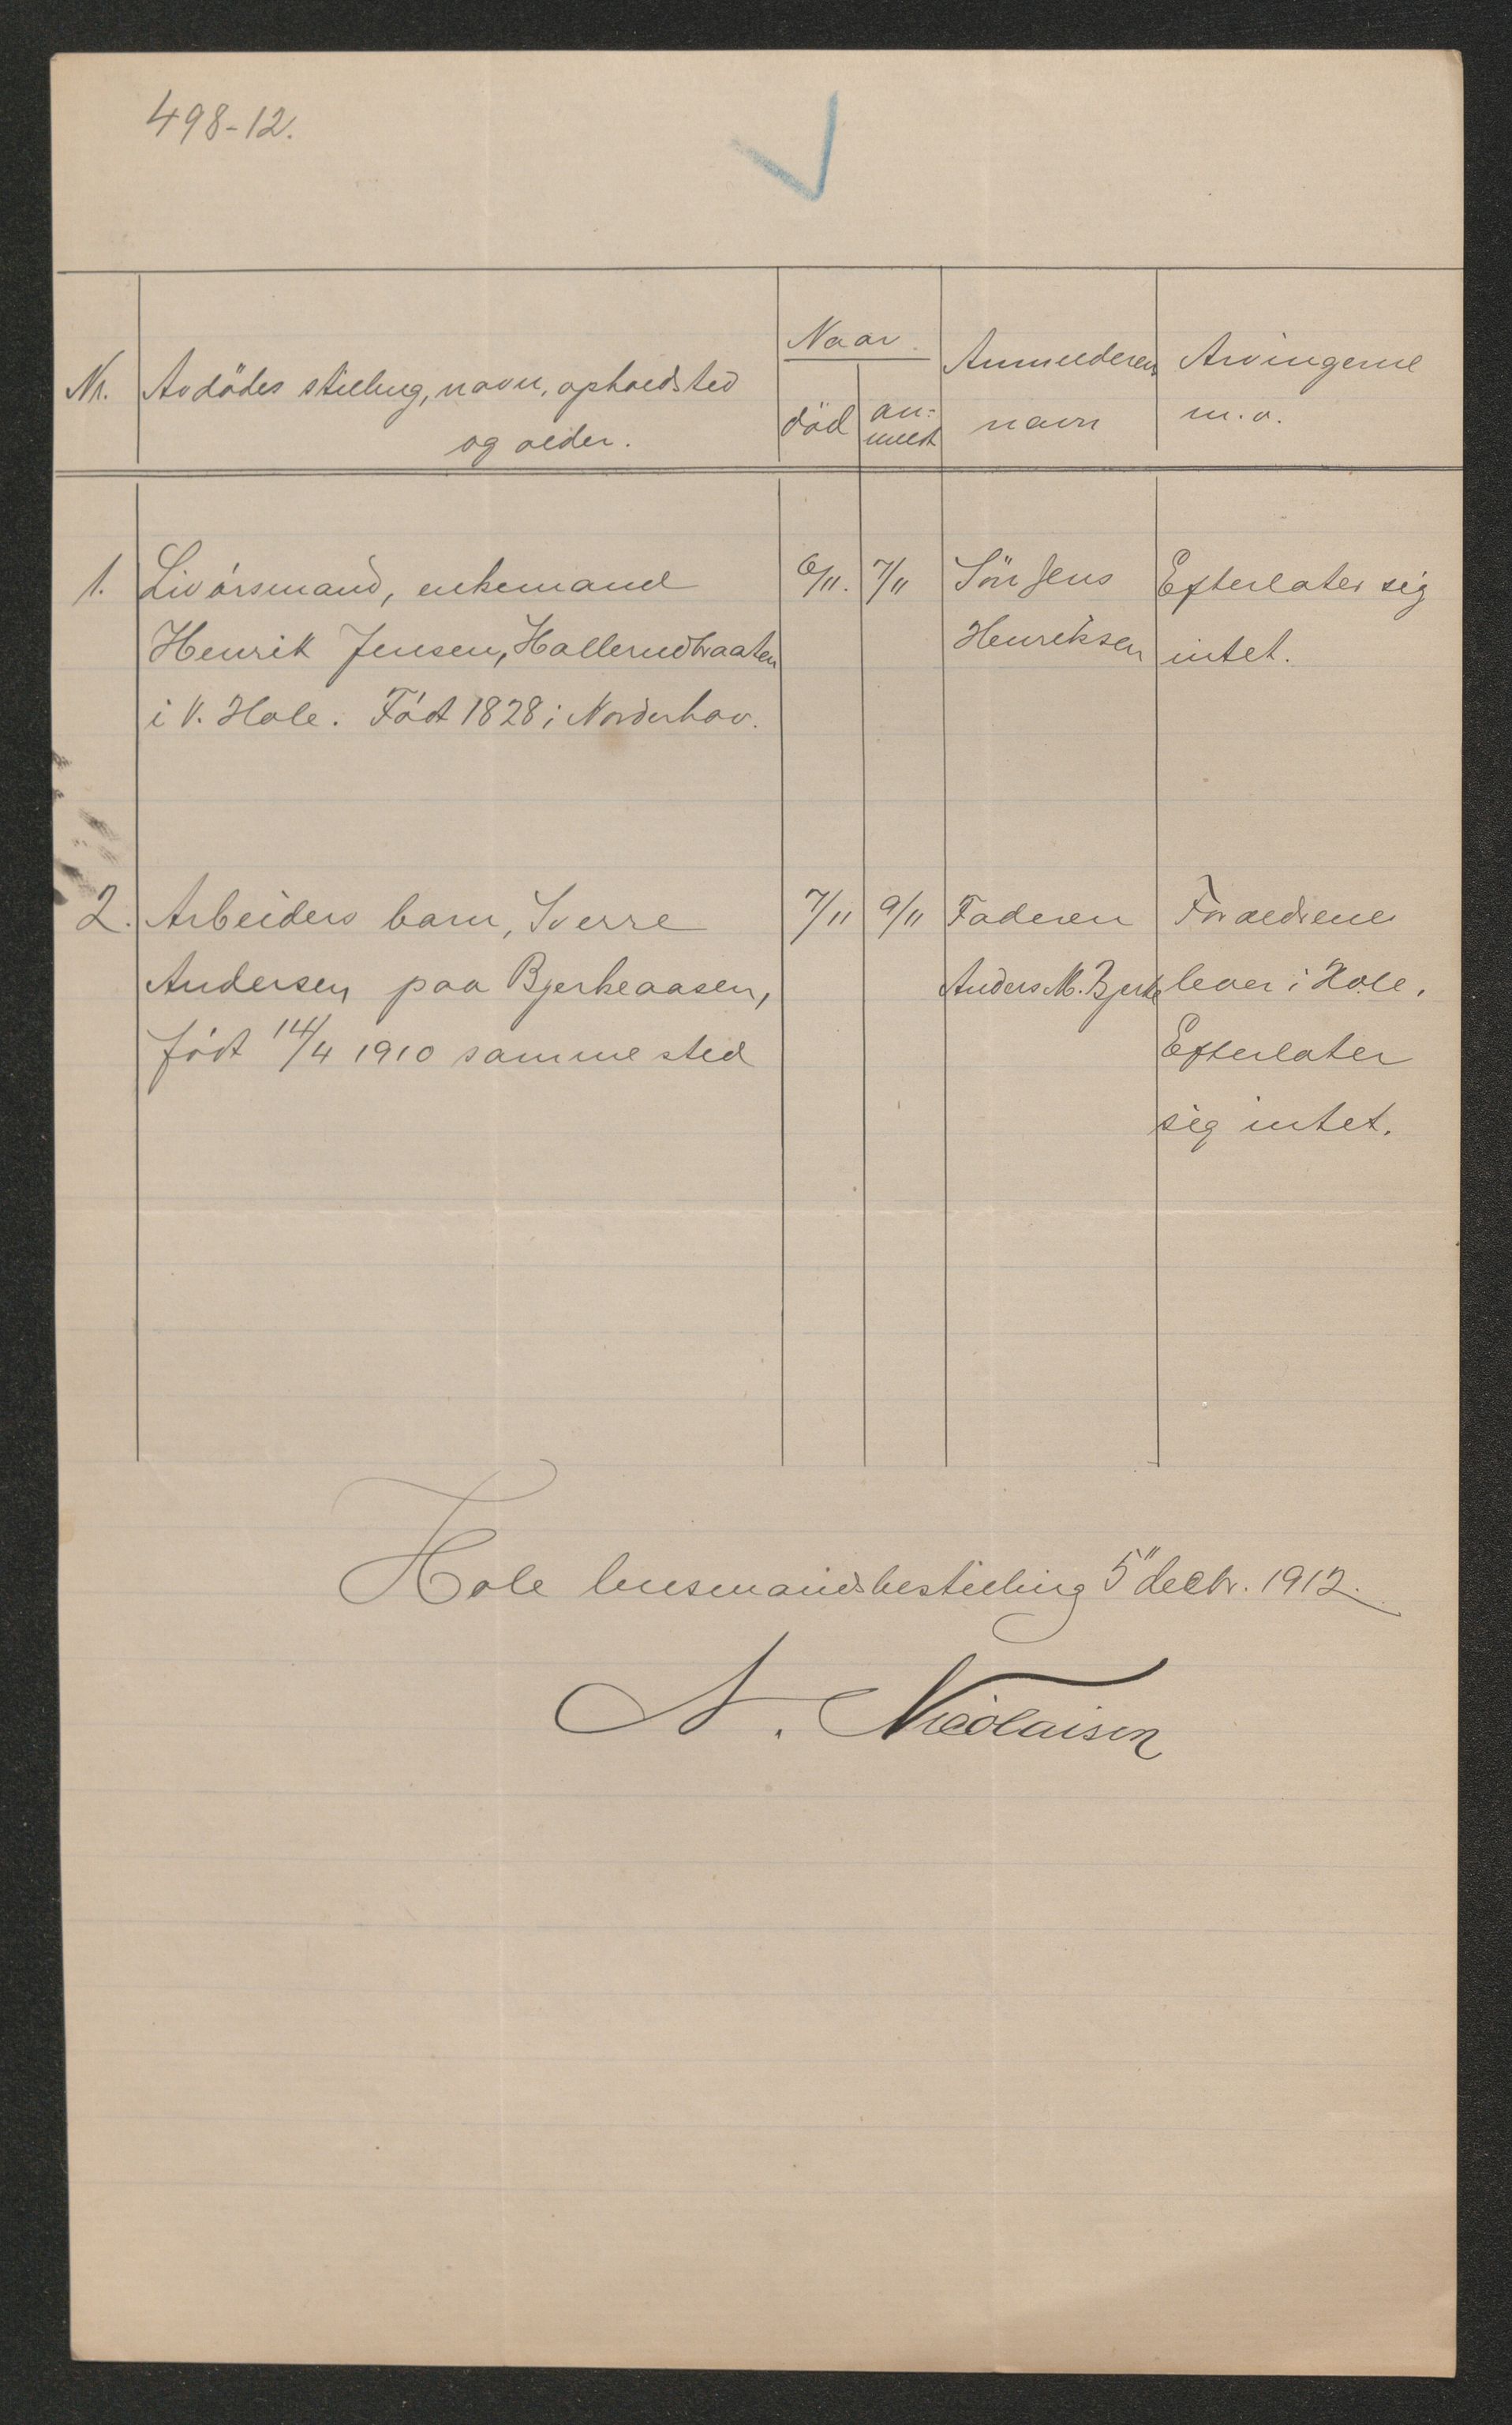 498-12.
Nr.
Avdödes stilling, navn, opholdsted
og alder.
Naar.
död
an-
meldt
Anmelderens
navn
Arvingerne
m.v.
1.
Livörsmand, enkemand
Henrik Jensen, Hallerudbraaten
i V. Hole. Födt 1828 i Norderhov.
6/11.
7/11
Sön Jens
Henriksen
Efterlater sig
intet.
2.
Arbeiders barn, Sverre
Andersen paa Bjerkeaasen,
födt 14/4 1910 samme sted
7/11
9/11
Faderen
Anders M. Bjerke
Forældrene
lever i Hole.
Efterlater
sig intet.
Hole lensmandsbestilling 5" decbr. 1912.
N. Nicolaisen